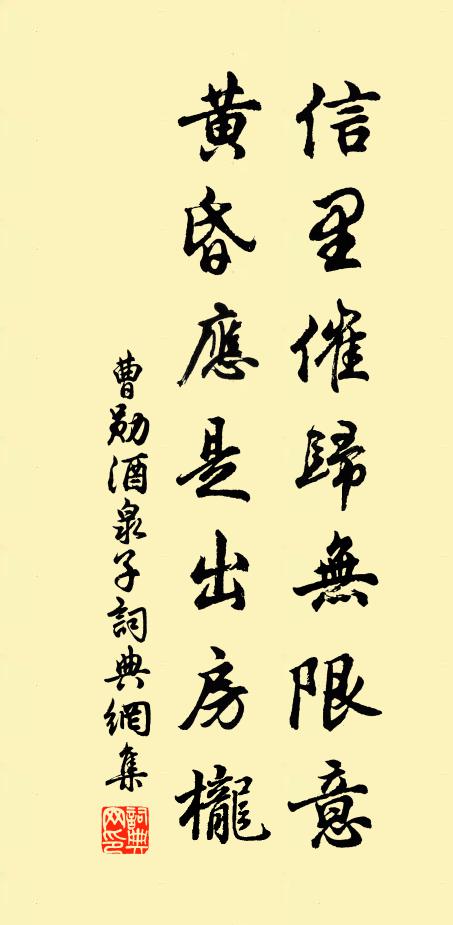 信里催歸無限意
黄昏應是出房櫳
曹勛酒泉子詞典網集
詞典網印